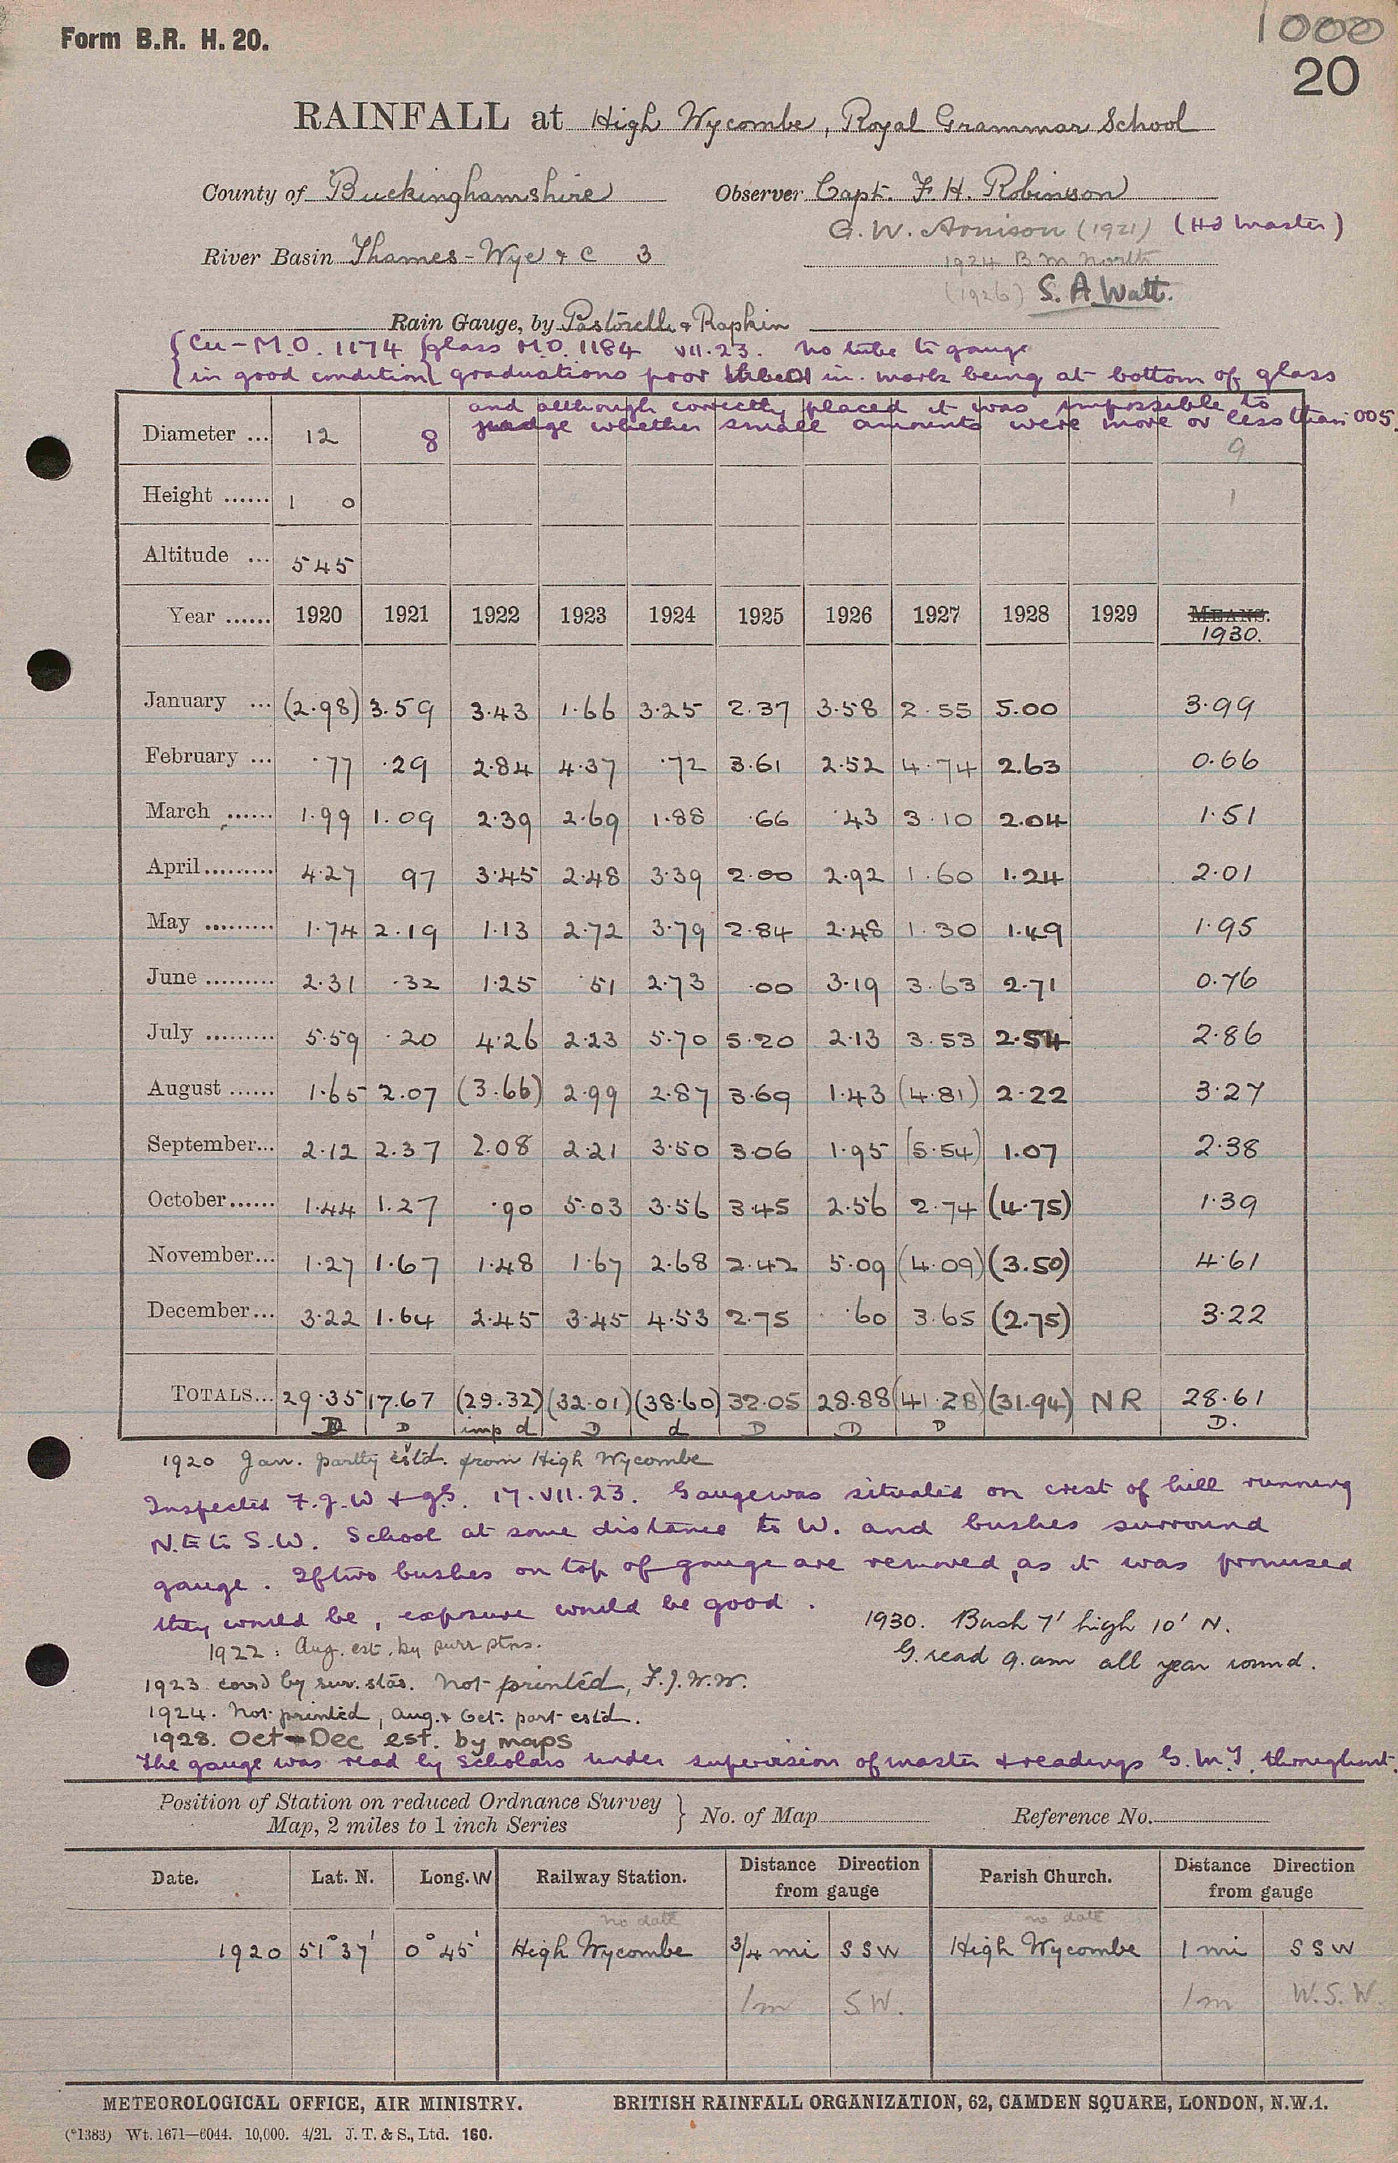 Form B.R. H. 20.
1000
20
RAINFALL at High Wycombe, Royal Grammar School
County of Buckinghamshire Observer Capt. F. H. Robinson
G. W. Arnison (1921) (Hd Master)
River Basin Thames - Wye & C 3
1924 B M North
(1926) S. A. Watt.
Rain Gauge, by Pastorelli & Rapkin
Cu - M.O. 1174 glass M.O. 1184 VII.23. No tube to gauge
in good condition graduations poor in. mark being at bottom of glass
and although correctly placed it was impossible to
judge whether small amounts were more or less than 005.
Diameter ... 12 8 9
Height ...... 1 0 1
Altitude ... 545
Year ...... 1920 1921 1922 1923 1924 1925 1926 1927 1928 1929 MEANS.
1930.
January ... (2.98) 3.59 3.43 1.66 3.25 2.37 3.58 2.55 5.00 3.99
February ... .77 .29 2.84 4.37 .72 3.61 2.52 4.74 2.63 0.66
March ...... 1.99 1.09 2.39 2.69 1.88 .66 .43 3.10 2.04 1.51
April ......... 4.27 97 3.45 2.48 3.39 2.00 2.92 1.60 1.24 2.01
May ......... 1.74 2.19 1.13 2.72 3.79 2.84 2.48 1.30 1.49 1.95
June ......... 2.31 .32 1.25 .51 2.73 .00 3.19 3.63 2.71 0.76
July ......... 5.59 .20 4.26 2.23 5.70 5.20 2.13 3.53 2.54 2.86
August ...... 1.65 2.07 (3.66) 2.99 2.87 3.69 1.43 (4.81) 2.22 3.27
September... 2.12 2.37 2.08 2.21 3.50 3.06 1.95 (5.54) 1.07 2.38
October...... 1.44 1.27 .90 5.03 3.56 3.45 2.56 2.74 (4.75) 1.39
November... 1.27 1.67 1.48 1.67 2.68 2.42 5.09 (4.09) (3.50) 4.61
December... 3.22 1.64 2.45 3.45 4.53 2.75 .60 3.65 (2.75) 3.22
TOTALS... 29.35 17.67 (29.32) (32.01) (38.60) 32.05 28.88 (41.28) (31.94) NR 28.61
D D imp d D d D D D D.
1920 Jan. partly est'd. from High Wycombe
Inspected F.J.W & 17.VII.23. Gauge was situated on crest of hill running
N.E to S.W. School at some distance to W. and bushes surround
gauge. If two bushes on top of gauge are removed, as it was promised
they would be, exposure would be good.
1930. Bush 7' high 10' N.
G. read 9.am all year round.
1922: Aug. est. by surr stns.
1923 cor'd by sur. stas. Not printed, F.J.W.W.
1924. Not printed, Aug. & Oct. part est'd.
1928. Oct-Dec est. by maps
The gauge was read by Scholars under supervision of master & readings G.M.T. throughout.
Position of Station on reduced Ordnance Survey
Map, 2 miles to 1 inch Series } No. of Map Reference No.
Date. Lat. N. Long. W Railway Station. Distance Direction from gauge Parish Church. Distance Direction from gauge
no date no date
1920 51° 37' 0° 45' High Wycombe 3/4 mi S S W High Wycombe 1 mi S S W
1m S.W. 1m W.S.W.
METEOROLOGICAL OFFICE, AIR MINISTRY. BRITISH RAINFALL ORGANIZATION, 62, CAMDEN SQUARE, LONDON, N.W.1.
(*1383) Wt. 1671—6044. 10,000. 4/21. J. T. & S., Ltd. 160.